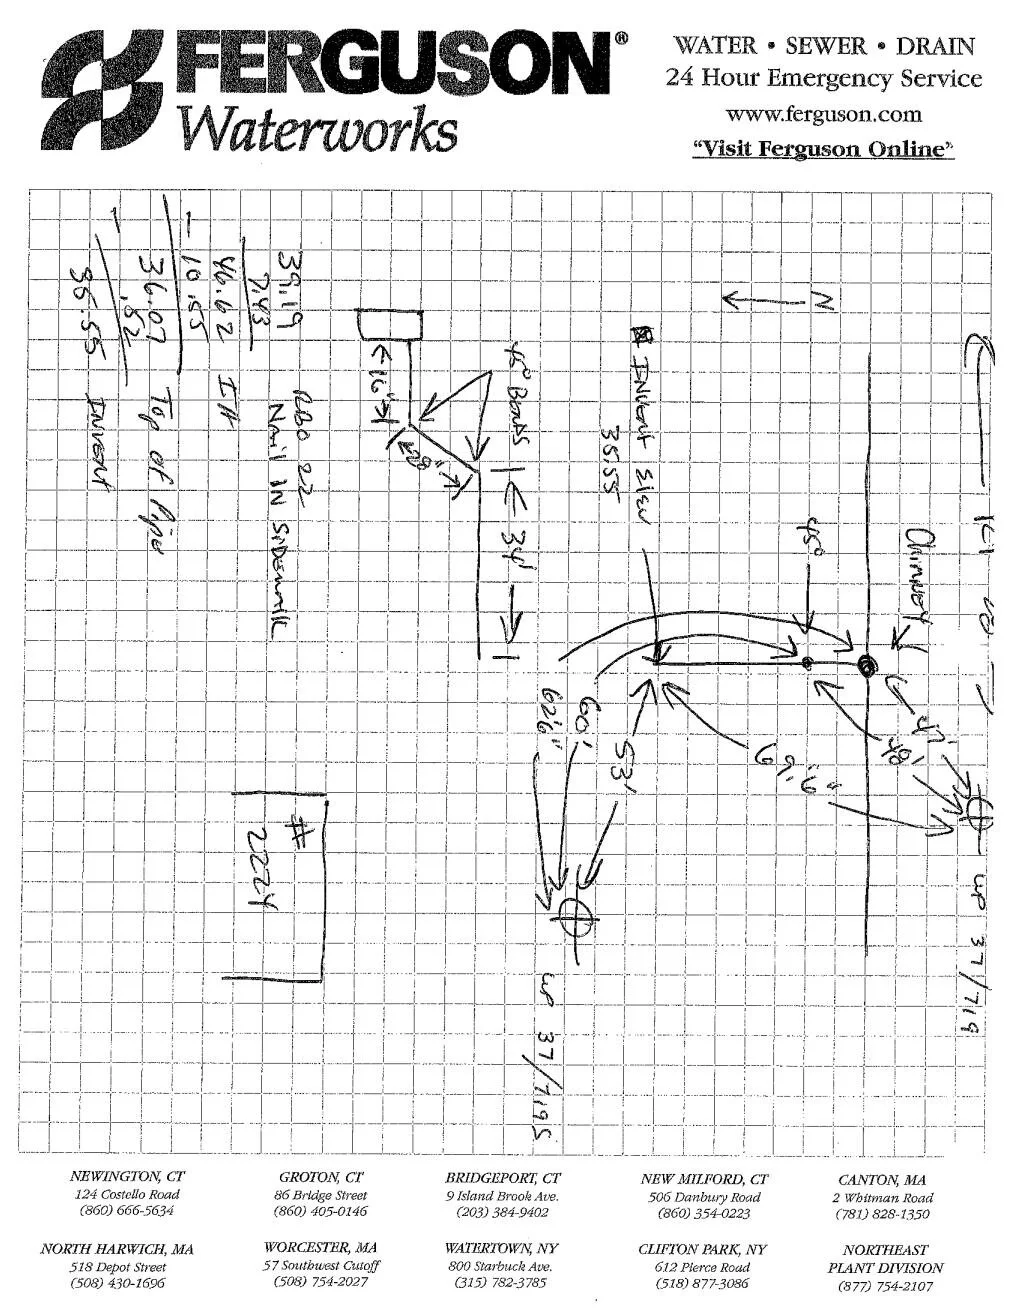 FERGUSON®
Waterworks
WATER • SEWER • DRAIN
24 Hour Emergency Service
www.ferguson.com
"Visit Ferguson Online"
39.19
7.43
46.62 IH
- 10.55
36.07 Top of Pipe
- .52
35.55 Invert
RBO 22
Nail IN Sidewalk
16"
28"
45° Bends
34'
Invert Elev
35.55
N
45°
Chimney
47'
48'
69'6"
53'
60'
62'6"
UP 37/719
UP 37/719S
#
2224
NEWINGTON, CT
124 Costello Road
(860) 666-5634
GROTON, CT
86 Bridge Street
(860) 405-0146
BRIDGEPORT, CT
9 Island Brook Ave.
(203) 384-9402
NEW MILFORD, CT
506 Danbury Road
(860) 354-0223
CANTON, MA
2 Whitman Road
(781) 828-1350
NORTH HARWICH, MA
518 Depot Street
(508) 430-1696
WORCESTER, MA
57 Southwest Cutoff
(508) 754-2027
WATERTOWN, NY
800 Starbuck Ave.
(315) 782-3785
CLIFTON PARK, NY
612 Pierce Road
(518) 877-3086
NORTHEAST
PLANT DIVISION
(877) 754-2107